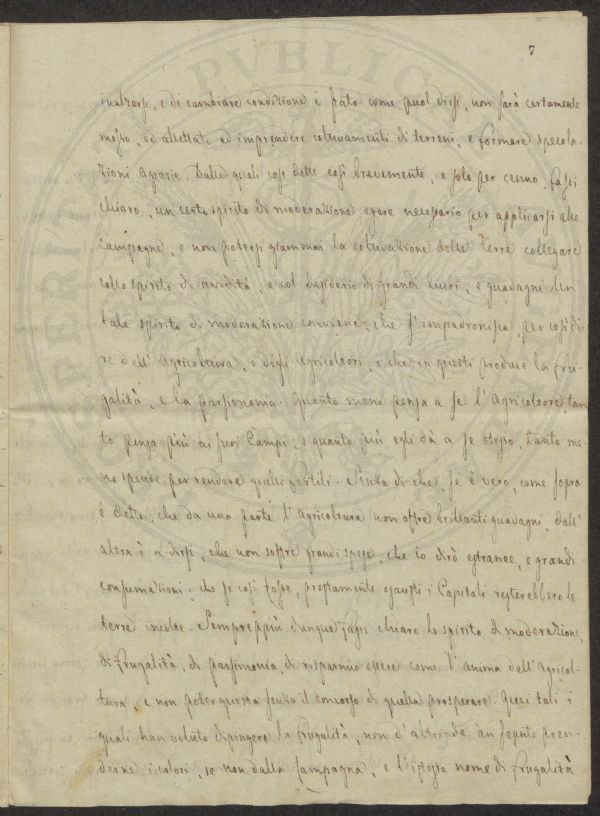 7
inalzarsi, e di cambiare condizione i stato come puol dirsi, non sarà certamente
mosso, ed allettato ad imprendere coltivamenti di terreni, e formare specola-
zioni Agrarie. Dalle quali cose dette così brevemente, e solo per cenno, fassi
chiaro, un certo spirito di moderazione essere necessario per applicarsi alle
Campagne, e non potersi giammai la coltivazione delle Terre collegare
collo spirito di avidità, e col desiderio di grandi lucri, e guadagni. Un
tale spirito di moderazione conviene, che s'impadronisca, per così di-
re dell'Agricoltura, e degli Agricoltori, e che in questi produce la fru-
galità, e la parsimonia. Quanto meno pensa a se l'Agricoltore tan
to pensa più ai suoi Campi, e quanto più egli dà a se stesso, tanto me-
no spende per rendere quelli fertili. Senza di che, se è vero, come sopra
è detto, che da una parte l'Agricoltura non offre brillanti guadagni, dall'
altra è a dirsi, che non soffre grandi spese, che io dirò estranee, e grandi
consumazioni, che se così fosse, prestamente esausti i Capitali resterebbero le
terre incolte. Sempre più dunque fassi chiaro lo spirito di moderazione,
di frugalità, di parsimonia, di risparmio essere come l'anima dell'Agricol-
tura, e non poter questa senza il concorso di quella prosperare. Quei tali i
quali han voluto dipingere la frugalità, non d'altronde an saputo pren-
derne i colori, se non dalla Campagna, e l'istesso nome di frugalità
PVBLIC